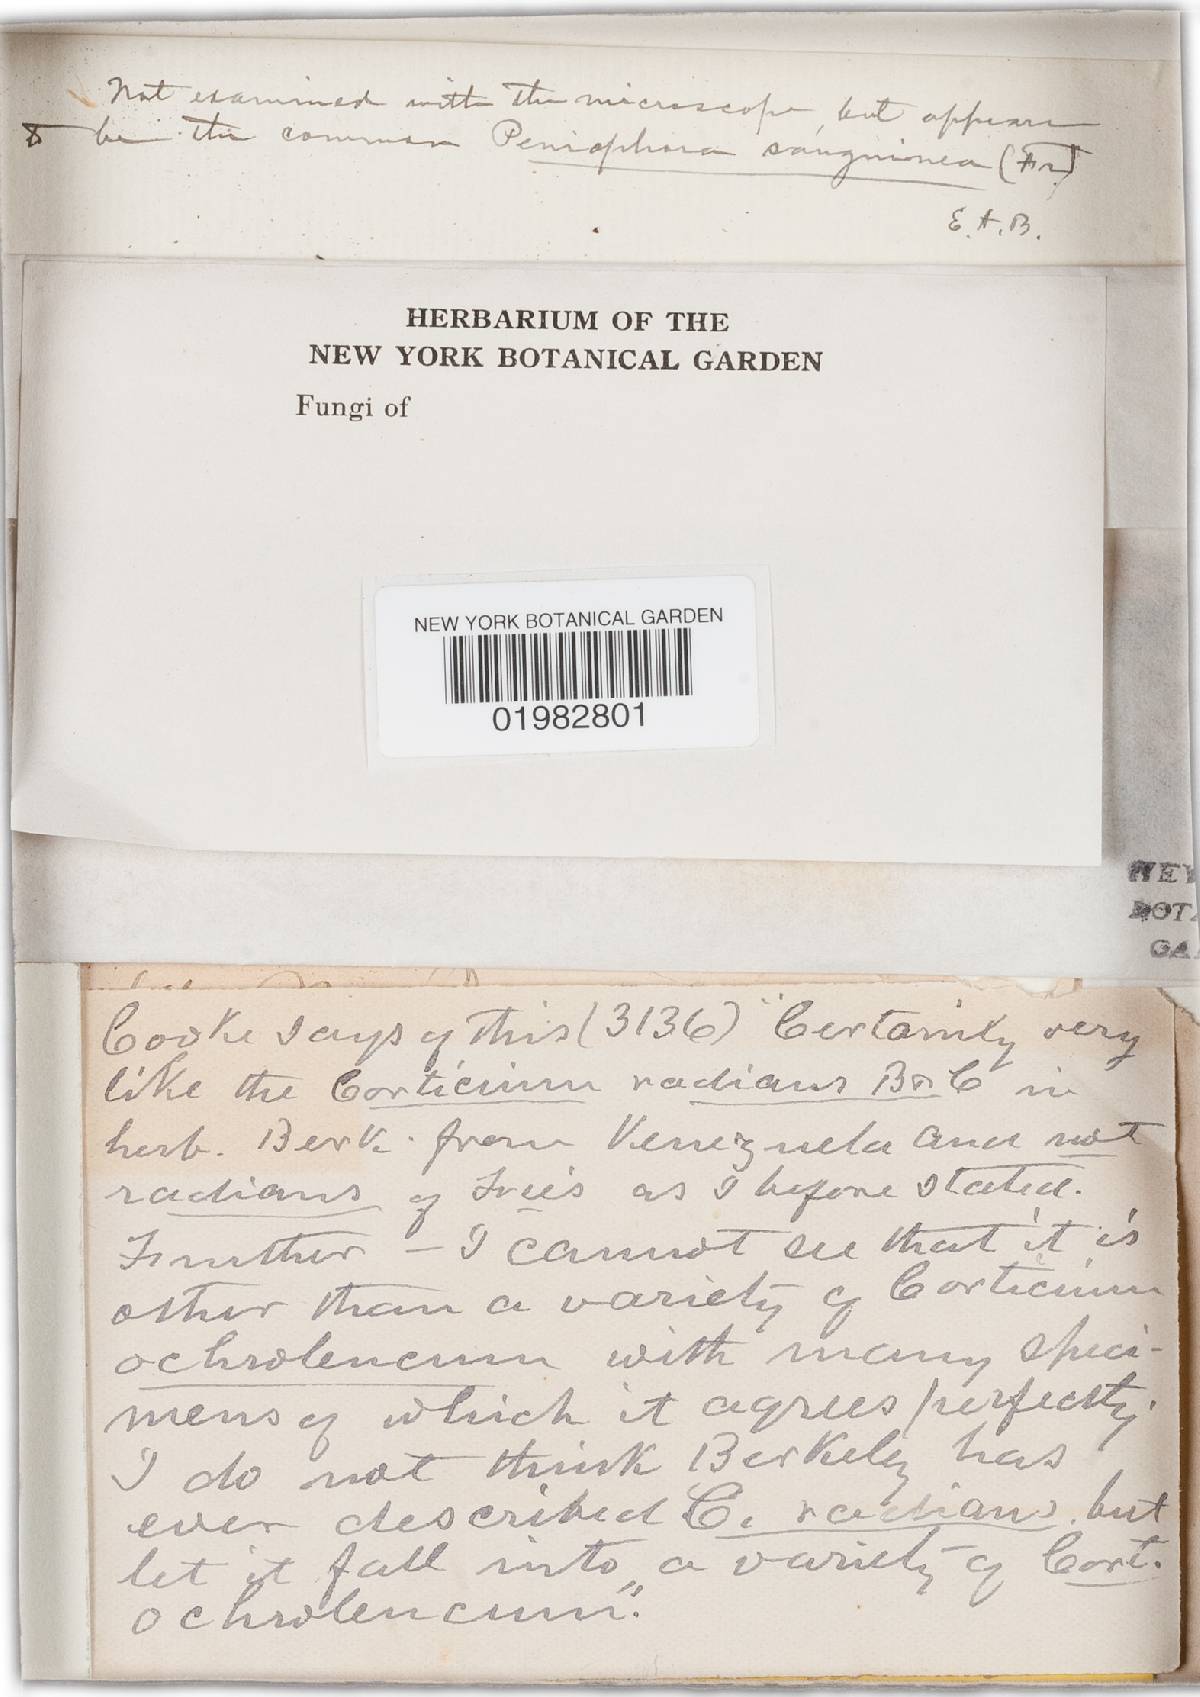 Not examined with the microscope, but appears
to be the common Peniophora sanguinea (Fr)
E. A. B.
HERBARIUM OF THE
NEW YORK BOTANICAL GARDEN
Fungi of
NEW YORK BOTANICAL GARDEN
01982801
NEW
BOTA
GA
Cooke says of this (3136) "Certainly very
like the Corticium radians B & C in
herb. Berk. from Venezuela and not
radians of Fries as I before stated.
Further – I cannot see that it is
other than a variety of Corticium
ochroleucum with many speci-
mens of which it agrees perfectly.
I do not think Berkeley has
ever described C. radians but
let it fall into a variety of Cort.
ochroleucum".